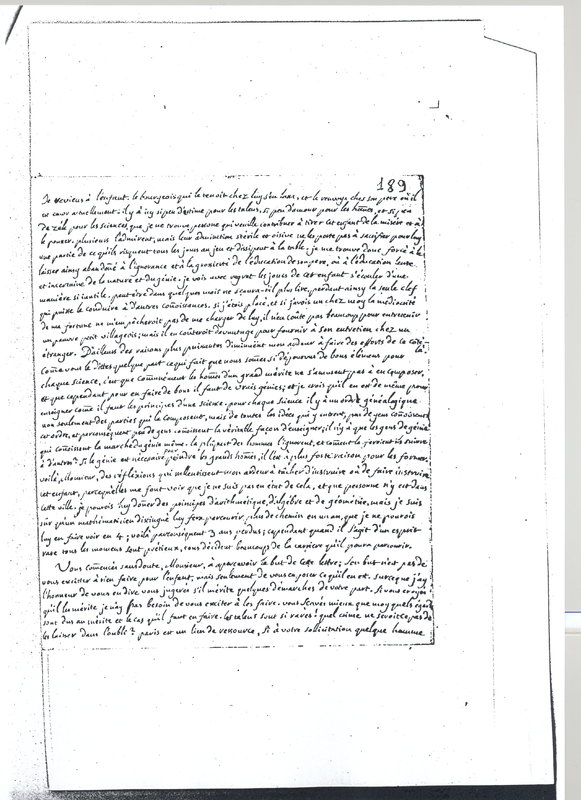 189
Je reviens à l'enfant. le bourgeois qui le tenoit chez luy s'en lasse, et le renvoye chez son pere où il
est encor actuellement. il y à icy si peu d'estime pour les talens, si peu d'amour pour les hommes, et si peu
de zèle pour les sciences, que je ne trouve personne qui veuille contribuer à tirer cet enfant de la misère et à
le pousser. plusieurs l'admirent, mais leur admiration stérile et oisive ne les porte pas à sacrifier pour luy
une partie de ce qu'ils risquent tous les jours au jeu et dissipent à la table. je me trouve donc forcé à le
laisser ainsy abandoné à l'ignorance et à la grossiereté de l'éducation de son pere, où à l'éducation lente
et incertaine de la nature et du génie. je vois avec regret les jours de cet enfant s'écouler d'une
manière si inutile. peut-être dans quelques mois ne sçaura-t-il plus lire, perdant ainsy la seule clef
qui puisse le conduire à d'autres conoissances. si j'étois placé, et si j'avois un chez moy la médiocrité
de ma fortune ne m'empêcheroit pas de me charger de luy, il n'en coûte pas beaucoup pour entretenir
un pauvre petit villageois; mais il en coûteroit davantage pour fournir à son entretien chez un
étranger. D'ailleurs des raisons plus puissantes diminuent mon ardeur à faire des efforts de ce côté-
là. Come vous le dittes quelque part ce qui fait que nous somes si dépourvus de bons élémens pour
chaque science, c'est que comunément les homes d'un grand mérite ne s'amusent pas à en composer,
et que cependant pour en faire de bons il faut de vrais génies; et je crois qu'il en est de même pour
enseigner come il faut les principes d'une science. pour chaque science il y à un ordre généalogique
non seulement des parties qui la composent, mais de toutes les idées qui y entrent, peu de gens conoissent
cet ordre, et par conséquent peu de gens conoissent la véritable façon d'enseigner; il n'y à que les gens de génie
qui conoissent la marche du génie même. la plûpart des hommes l'ignorent, et coment la feroient-ils suivre
à d'autres? Si le génie est nécessaire pour peindre les grands homes, il l'est à plus forte raison pour les former.
voilà, Monsieur, des réfléxions qui rallentissent mon ardeur à tâcher d'instruire où de faire instruire
cet enfant, parcequ'elles me font voir que je ne suis pas en état de cela, et que personne n'y est dans
cette ville. je pourois luy doner des principes d'arithmétique, d'algèbre et de géométrie, mais je suis
sûr qu'un mathématicien distingué luy fera parcourir plus de chemin en un an, que je ne pourois
luy en faire voir en 4; voilà par conséquent 3 ans perdus; cependant quand il s'agit d'un esprit
rare tous les momens sont prétieux, tous décident beaucoup de la carriere qu'il poura parcourir.
Vous comencés sans doute, Monsieur, à apercevoir le but de cette lettre; son but n'est pas de
vous exciter à rien faire pour l'enfant, mais seulement de vous exposer ce qu'il en est. sur ce que j'ay
l'honneur de vous en dire vous jugeres s'il mérite quelques démarches de votre part. Si vous croyés
qu'il les mérite je n'ay pas besoin de vous exciter à les faire. vous sçavés mieux que moy quels égards
sont dus au mérite et le cas qu'il faut en faire. les talens sont si rares! quel crime ne seroit-ce pas de
les laisser dans l'oubli? paris est un lieu de ressource, Si à votre sollicitation quelque homme